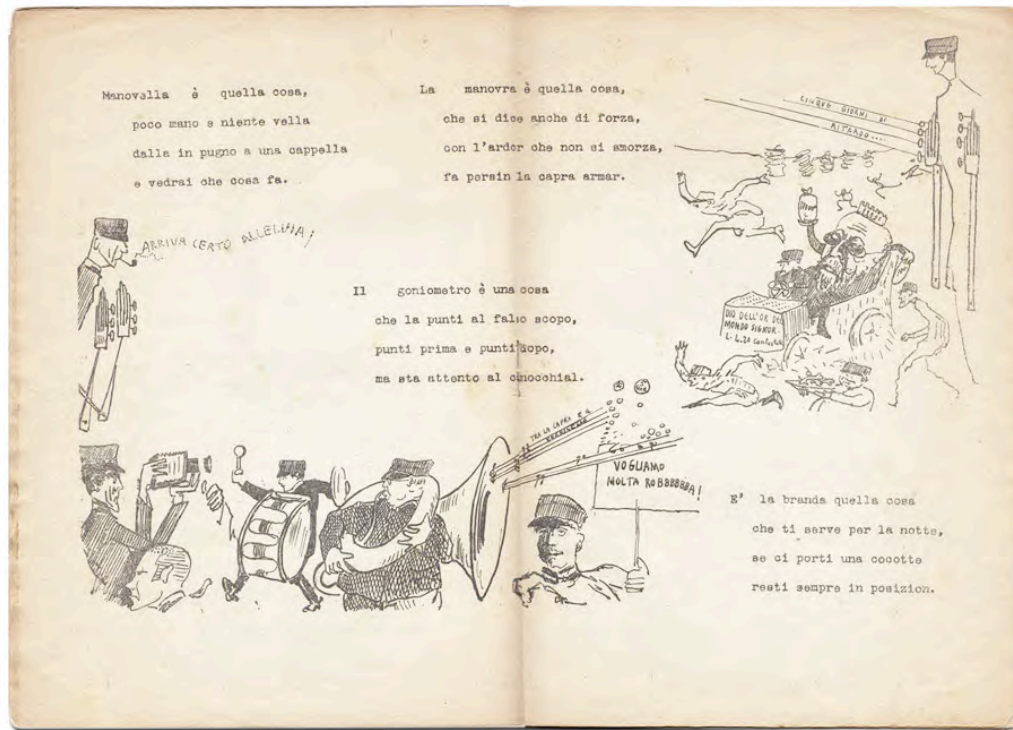 Manovella è quella cosa,
poco mano e niente vella
dalla in pugno a una cappella
e vedrai che cosa fa.
La manovra è quella cosa,
che si dice anche di forza,
con l'ardor che non si smorza,
fa persin la capra armar.
CINQUE GIORNI DI
RITARDO....
ARRIVA CERTO ALLELUIA!
DIO DELL'OR DEL
MONDO SIGNOR
Il goniometro è una cosa
che la punti al falso scopo,
punti prima e punti dopo,
ma sta attento al cinocchial.
TRA LA CAPRA E IL
VOGLIAMO
MOLTA ROBBBBBBA!
E' la branda quella cosa
che ti serve per la notte,
se ci porti una cocotte
resti sempre in posizion.